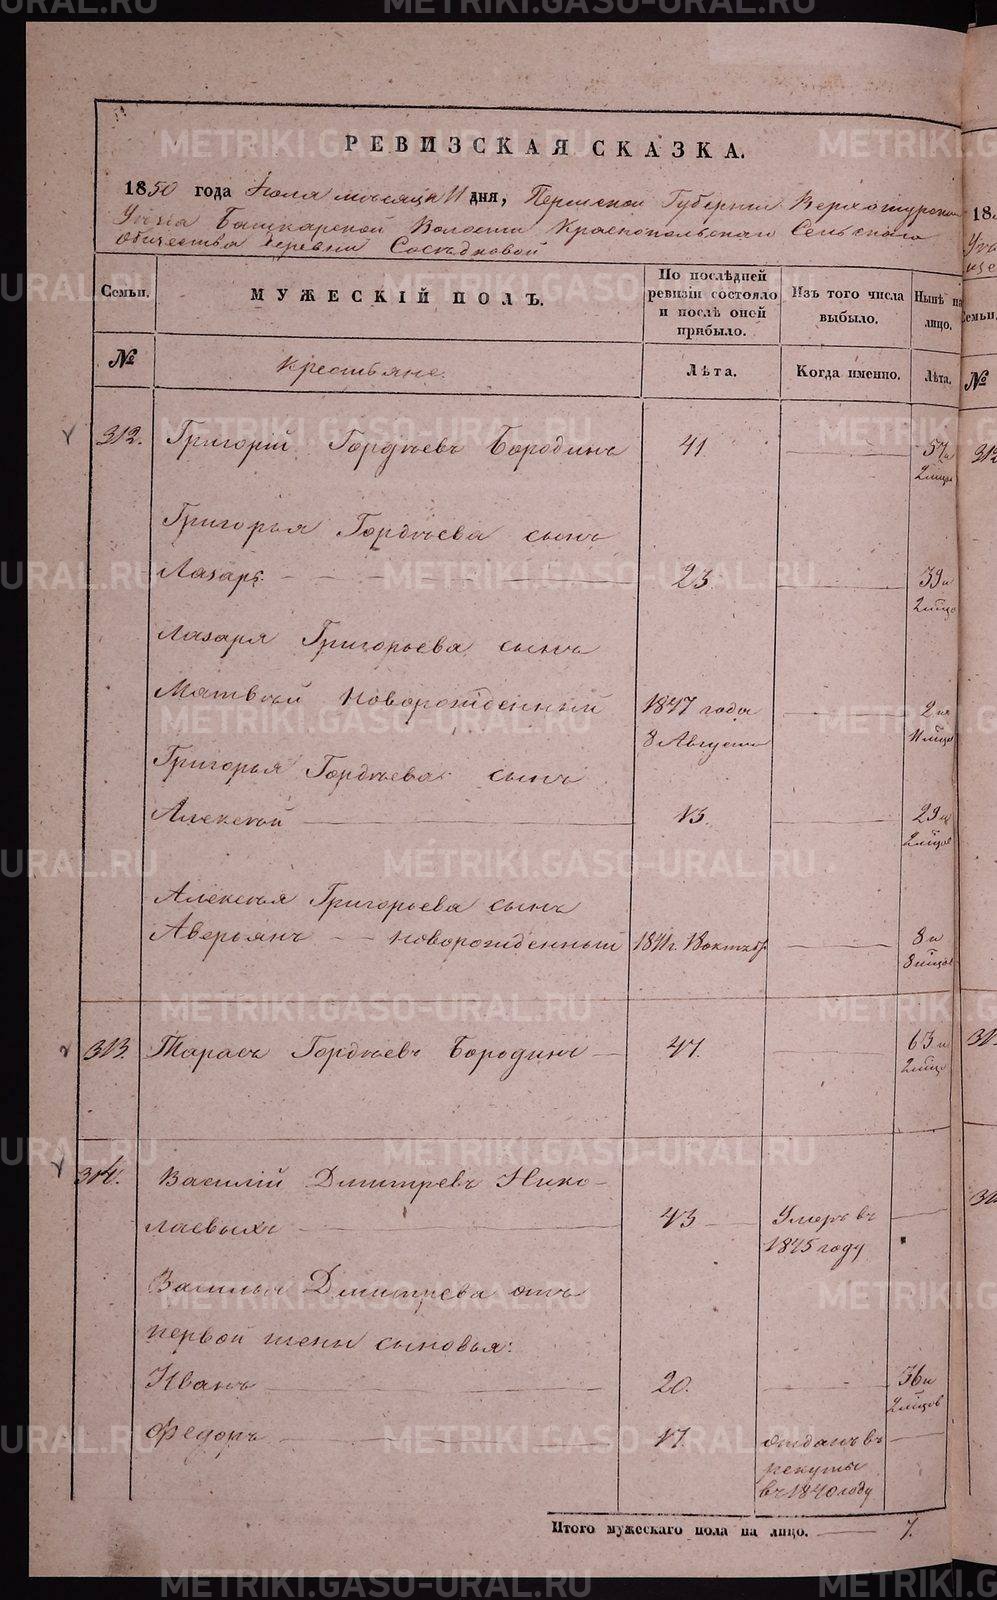 РЕВИЗСКАЯ СКАЗКА.
1850 года Июля месяца 11 дня, Пермской Губернии Верхотурскаго
Уезда Башкарской Волости Краснопольскаго Сельскаго
Общества деревни Соседковой
Семьи.
МУЖЕСКІЙ ПОЛЪ.
По послѣдней ревизіи состояло и послѣ оней прибыло.
Изъ того числа выбыло.
Нынѣ на лицо.
№
Крестьяне.
Лѣта.
Когда именно.
Лѣта.
312. Григорій Гордѣевъ Бородинъ 41 57 и
2 мѣця
Григорья Гордѣева сынъ
Лазарь 23. 39 и
2 мѣцо
Лазаря Григорьева сынъ
Матвѣй новорожденный 1847 года 2 и
8 Августа 11 мѣцо
Григорья Гордѣева сынъ
Алексѣй 13. 29 и
2 мѣцов
Алексѣя Григорьева сынъ
Аверьянъ новорожденный 1841г. 18 октяб. 8 и
8 мѣцов
313. Тарасъ Гордѣевъ Бородинъ 47. 63 и
2 мѣцо
314. Василій Дмитревъ Нико-
лаевыхъ 43 Умеръ въ
1845 году
Василья Дмитрева отъ
первой жены сыновья:
Иванъ 20. 36 и
2 мѣцов
Федоръ 17. отданъ въ
рекруты
въ 1840 году
Итого мужескаго пола на лицо. 7.
METRIKI.GASO-URAL.RU